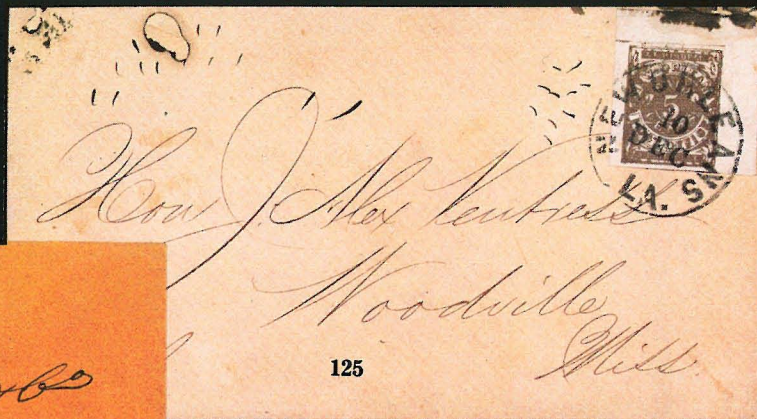 NEW ORLEANS
10
DEC
LA.
5
Hon J. Alex Ventress
Woodville
Miss.
125
& Co